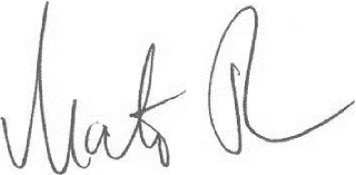 Mato R